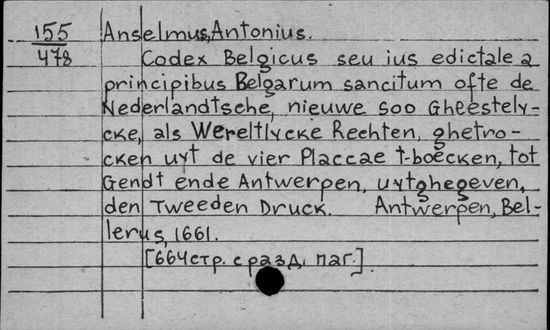 155
478
Anselmus, Antonius.
Codex Belgicus seu ius edictale a
principibus Belgarum sancitum ofte de
Nederlandtsche, nieuwe soo Gheestely-
cke, als Wereltlycke Rechten, ghetro-
cken uyt de vier Placcae t-boecken, tot
Gendt ende Antwerpen, uytghegeven,
den Tweeden Druck. Antwerpen, Bel-
lerus, 1661.
[664стр. с разд. паг.]